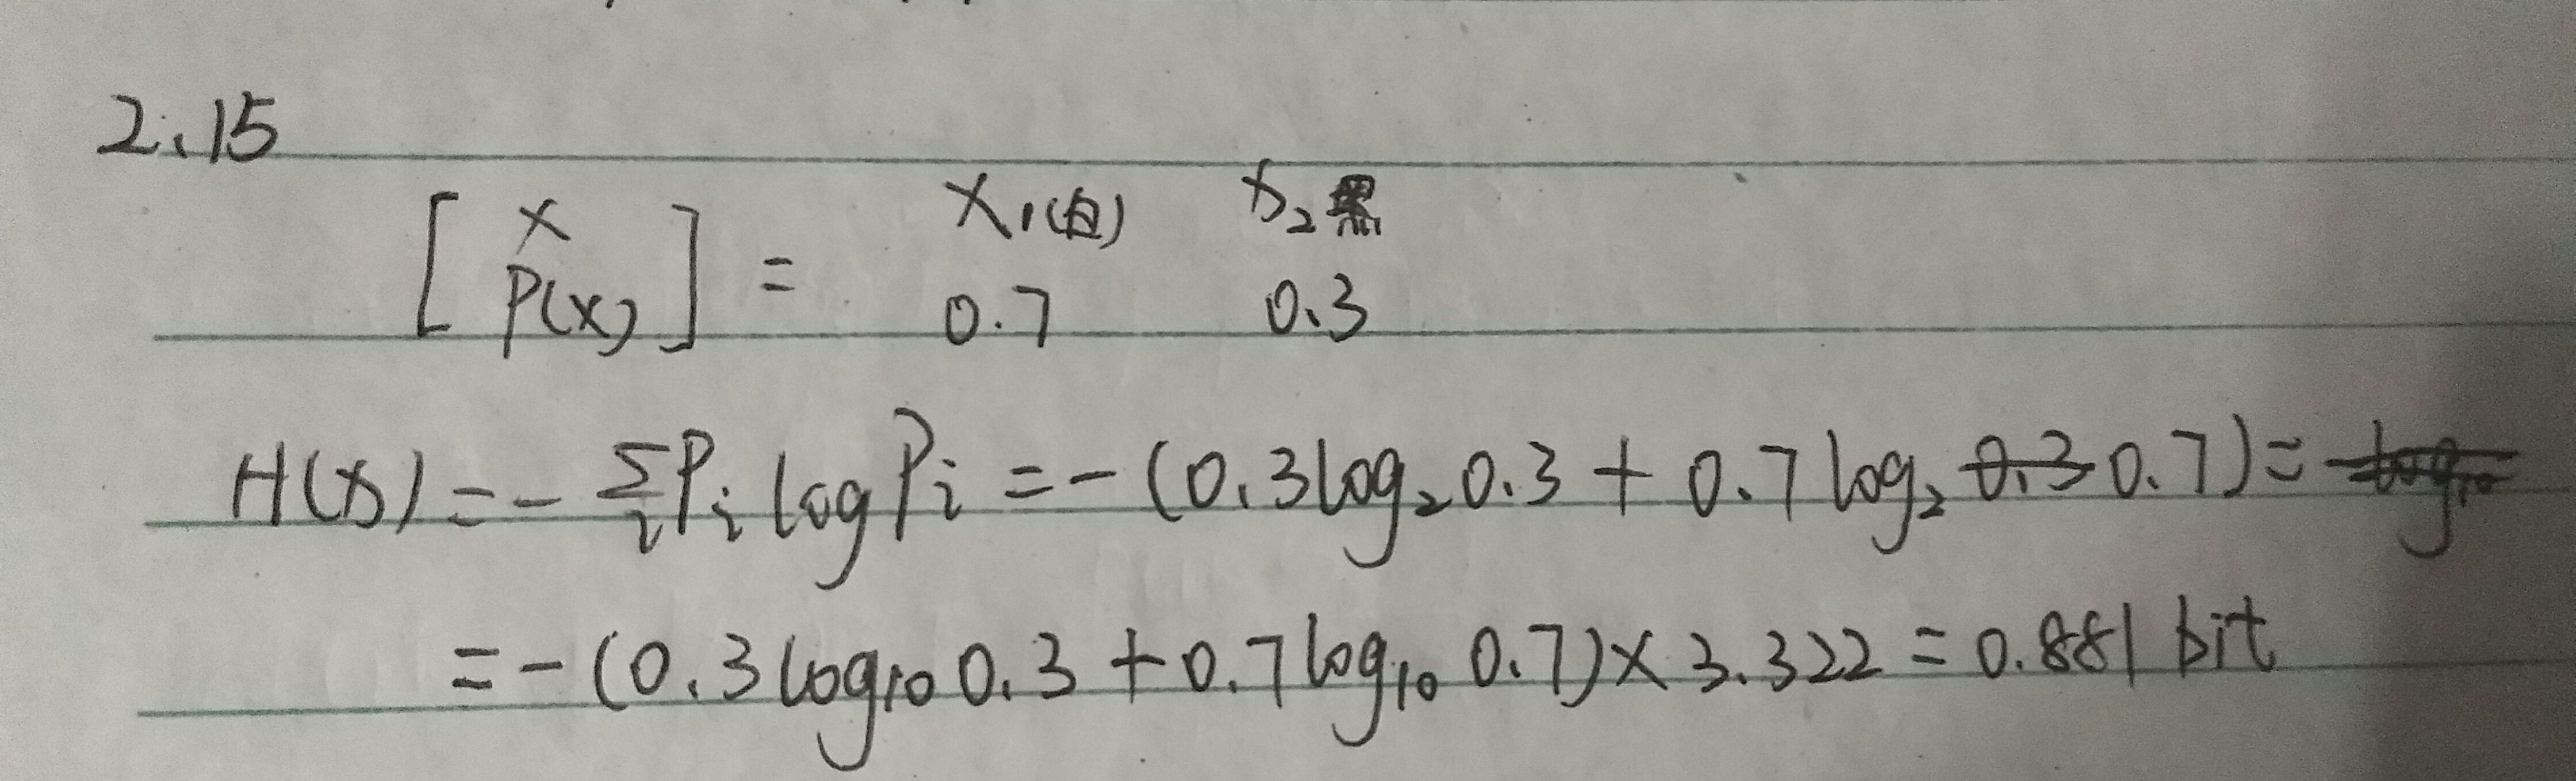 2.15
[ X = X₁(白) X₂黑
P(X) ] 0.7 0.3
H(X) = - Σᵢ Pᵢ log Pᵢ = - (0.3log₂0.3 + 0.7 log₂ 0.3 0.7) = log₁₀
= - (0.3 log₁₀ 0.3 + 0.7 log₁₀ 0.7) × 3.322 = 0.881 bit